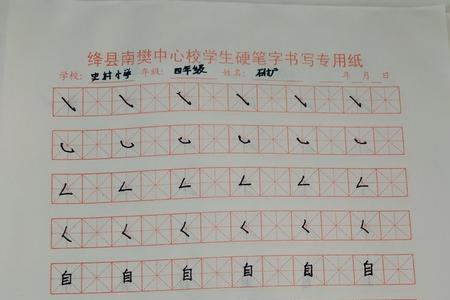 绛县南樊中心校学生硬笔字书写专用纸
学校: 史村小学 年级: 四年级 姓名: 年 月 日
㇏ ㇏ ㇏ ㇏ ㇏ ㇏
㇃ ㇃ ㇃ ㇃ ㇃ ㇃
𠃋 𠃋 𠃋 𠃋 𠃋 𠃋
㇛ ㇛ ㇛ ㇛ ㇛ ㇛
自 自 自 自 自 自